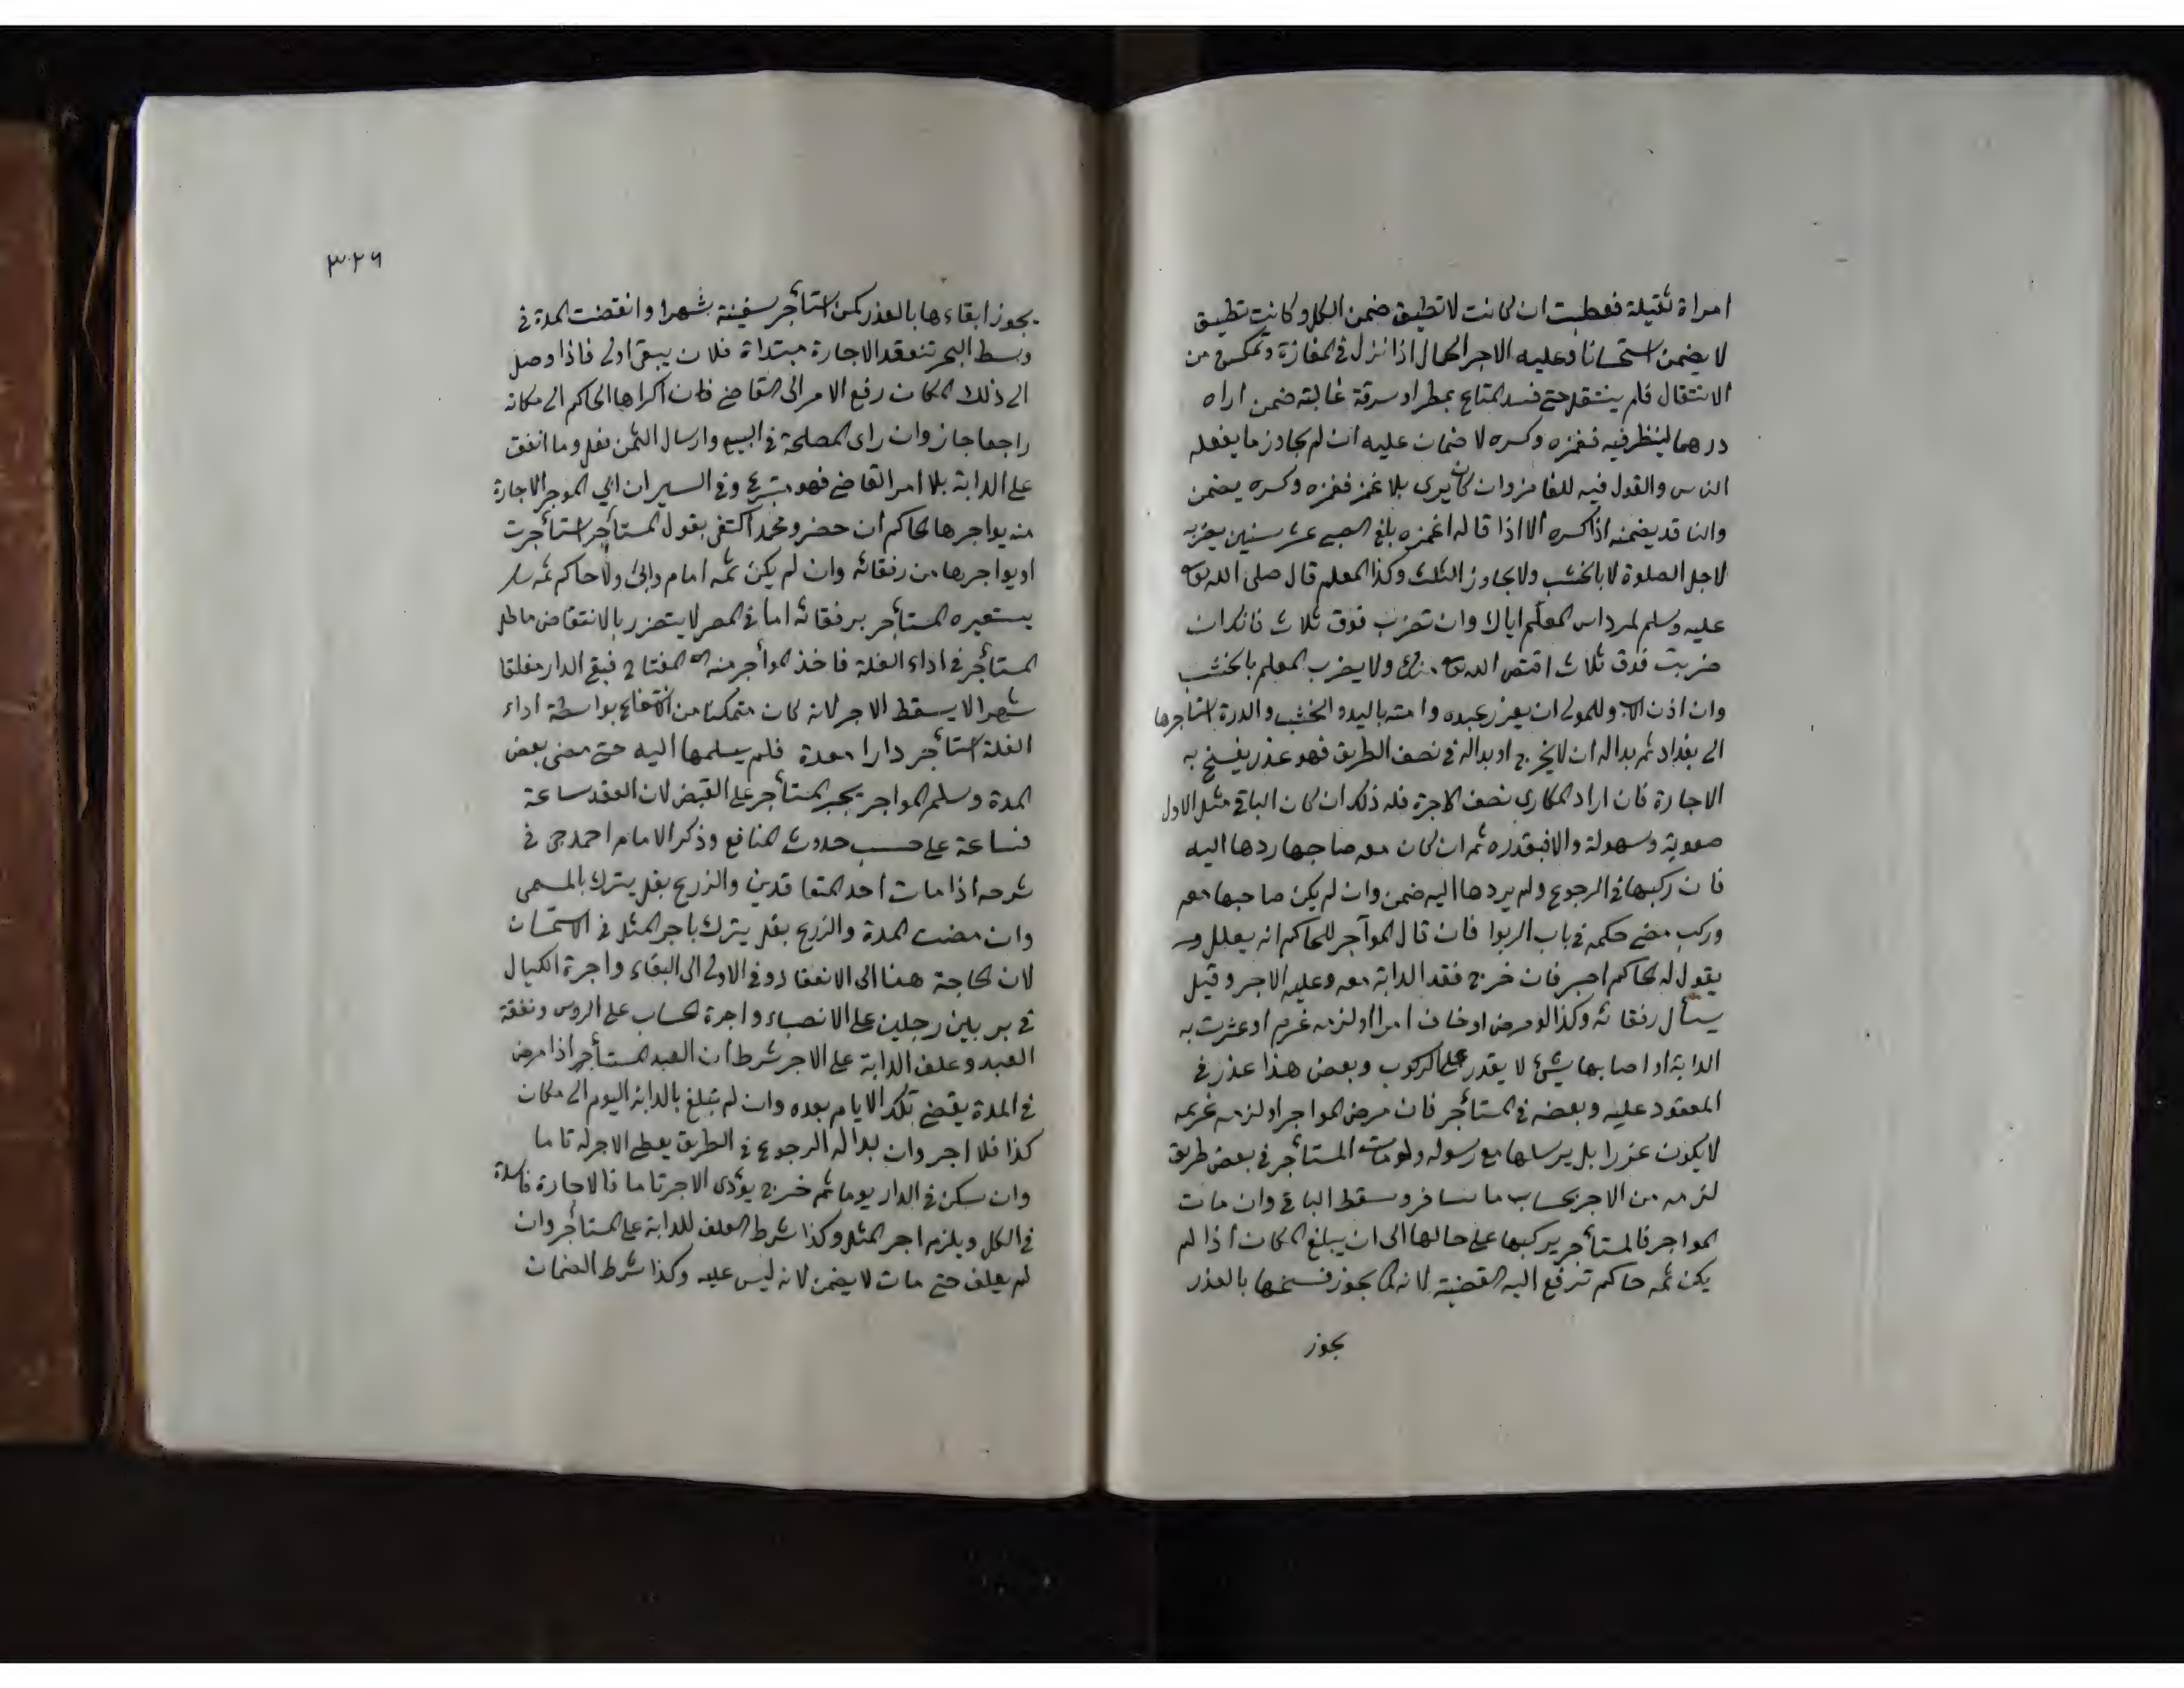 امراة ثقيلة فعطبت ان كانت لا تطيق ضمن الكل وكانت تطيق
لا يضمن استحسانا وعليه الاجر الحمال اذا نزل في المفازة وتمكن من
الانتقال فلم ينتقل حتى فسد المتاع بمطر او سرقة غالبة ضمن اراه
درهما لينظر فيه فغمزه وكسره لا ضمان عليه ان لم يجاوز ما يفعله
الناس والقول فيه للغامز وان كان يرى بلا غمز فغمزه وكسره يضمن
والناقد يضمنه اذا كسره الا اذا قال له اغمزه بلغ الصبى عشر سنين يضربه
لاجل الصلوة لا بالخشب ولا يجاوز الثلث وكذا المعلم قال صلى الله تعالى
عليه وسلم لمرداس المعلم اياك وان تضرب فوق ثلاث فانك ان
ضربت فوق ثلاث اقتص الله تعالى منك ولا يضرب المعلم بالخشب
وان اذن الاب وللمولى ان يعزر عبده وامته باليد والخشب والدرة استاجرها
الى بغداد ثم بدا له ان لا يخرج او بدا له في نصف الطريق فهو عذر يفسخ به
الاجارة فان اراد المكارى نصف الاجرة فله ذلك ان كان الباقي مثل الاول
صعوبة وسهولة والا فبقدره ثم ان كان معه صاحبها ردها اليه
فان ركبها في الرجوع ولم يردها اليه ضمن وان لم يكن صاحبها معه
وركب مضى حكمه في باب الربوا فان قال المواجر للحاكم انه يعلل
يقول له الحاكم اصبر فان خرج فقد الدابة معه وعليه الاجر وقيل
يسأل رفقائه وكذا لو مرض او خاف امرا او لزمه غريم او عثرت به
الدابة او اصابها شئ لا يقدر على الركوب وبعض هذا عذر في
المعقود عليه وبعضه في المستأجر فان مرض المواجر او لزمه غريمه
لا يكون عذرا بل يرسلها مع رسوله ولو مات المستأجر في بعض طريق
لزمه من الاجر بحساب ما سافر وسقط الباقي وان مات
المواجر فالمستأجر يركبها على حالها الى ان يبلغ المكان اذا لم
يكن ثمه حاكم ترفع اليه القضية لانه كما يجوز فسخها بالعذر
يجوز
٣٢٦
يجوز ابقاءها بالعذر كمن استأجر سفينة شهرا وانقضت المدة في
وسط البحر تنعقد الاجارة مبتداة فلان يبقى اولى فاذا وصل
الى ذلك المكان رفع الامر الى القاضي فان اكراها الحاكم الى مكانه
راجعا جاز وان راى المصلحة في البيع وارسال الثمن فعل وما انفق
على الدابة بلا امر القاضي فهو متبرع وفي السير ان ابى الموجر الاجارة
منه يواجرها الحاكم ان حضر ومحمد اكتفى بقول المستأجر استأجرت
او يواجرها من رفقائه وان لم يكن ثمه امام والى ولا حاكم ثمه
يستعيره المستأجر برفقائه اما في المصر لا يتضرر بالانتقاض ماطل
المستأجر في اداء الغلة فاخذ المواجر منه المفتاح فبقى الدار مغلقا
شهرا لا يسقط الاجر لانه كان متمكنا من الانتفاع بواسطة اداء
الغلة استأجر دارا معدة فلم يسلمها اليه حتى مضى بعض
المدة وسلم المواجر يجبر المستأجر على القبض لان العقد ساعة
فساعة على حسب حدوث المنافع وذكر الامام احمدجى في
شرحه اذا مات احد المتعاقدين والزرع بقل يترك بالمسمى
وان مضت المدة والزرع بقل يترك باجر المثل في الاستحسان
لان الحاجة هنا الى الانعقاد وفي الاولى الى البقاء واجرة الكيال
في بر بين رجلين على الانصباء واجرة الحساب على الروس ونفقة
العبد وعلف الدابة على الاجر شرط ان العبد المستأجر اذا مرض
في المدة يقضي تلك الايام بعده وان لم تبلغ بالدابة اليوم الى مكان
كذا فلا اجر وان بدا له الرجوع في الطريق يعطى الاجر له تاما
وان سكن في الدار يوما ثم خرج يؤدى الاجر تاما فالاجارة فاسدة
في الكل ويلزم اجر المثل وكذا شرط العلف للدابة على المستأجر وان
لم يعلف حتى مات لا يضمن لانه ليس عليه وكذا شرط الضمان